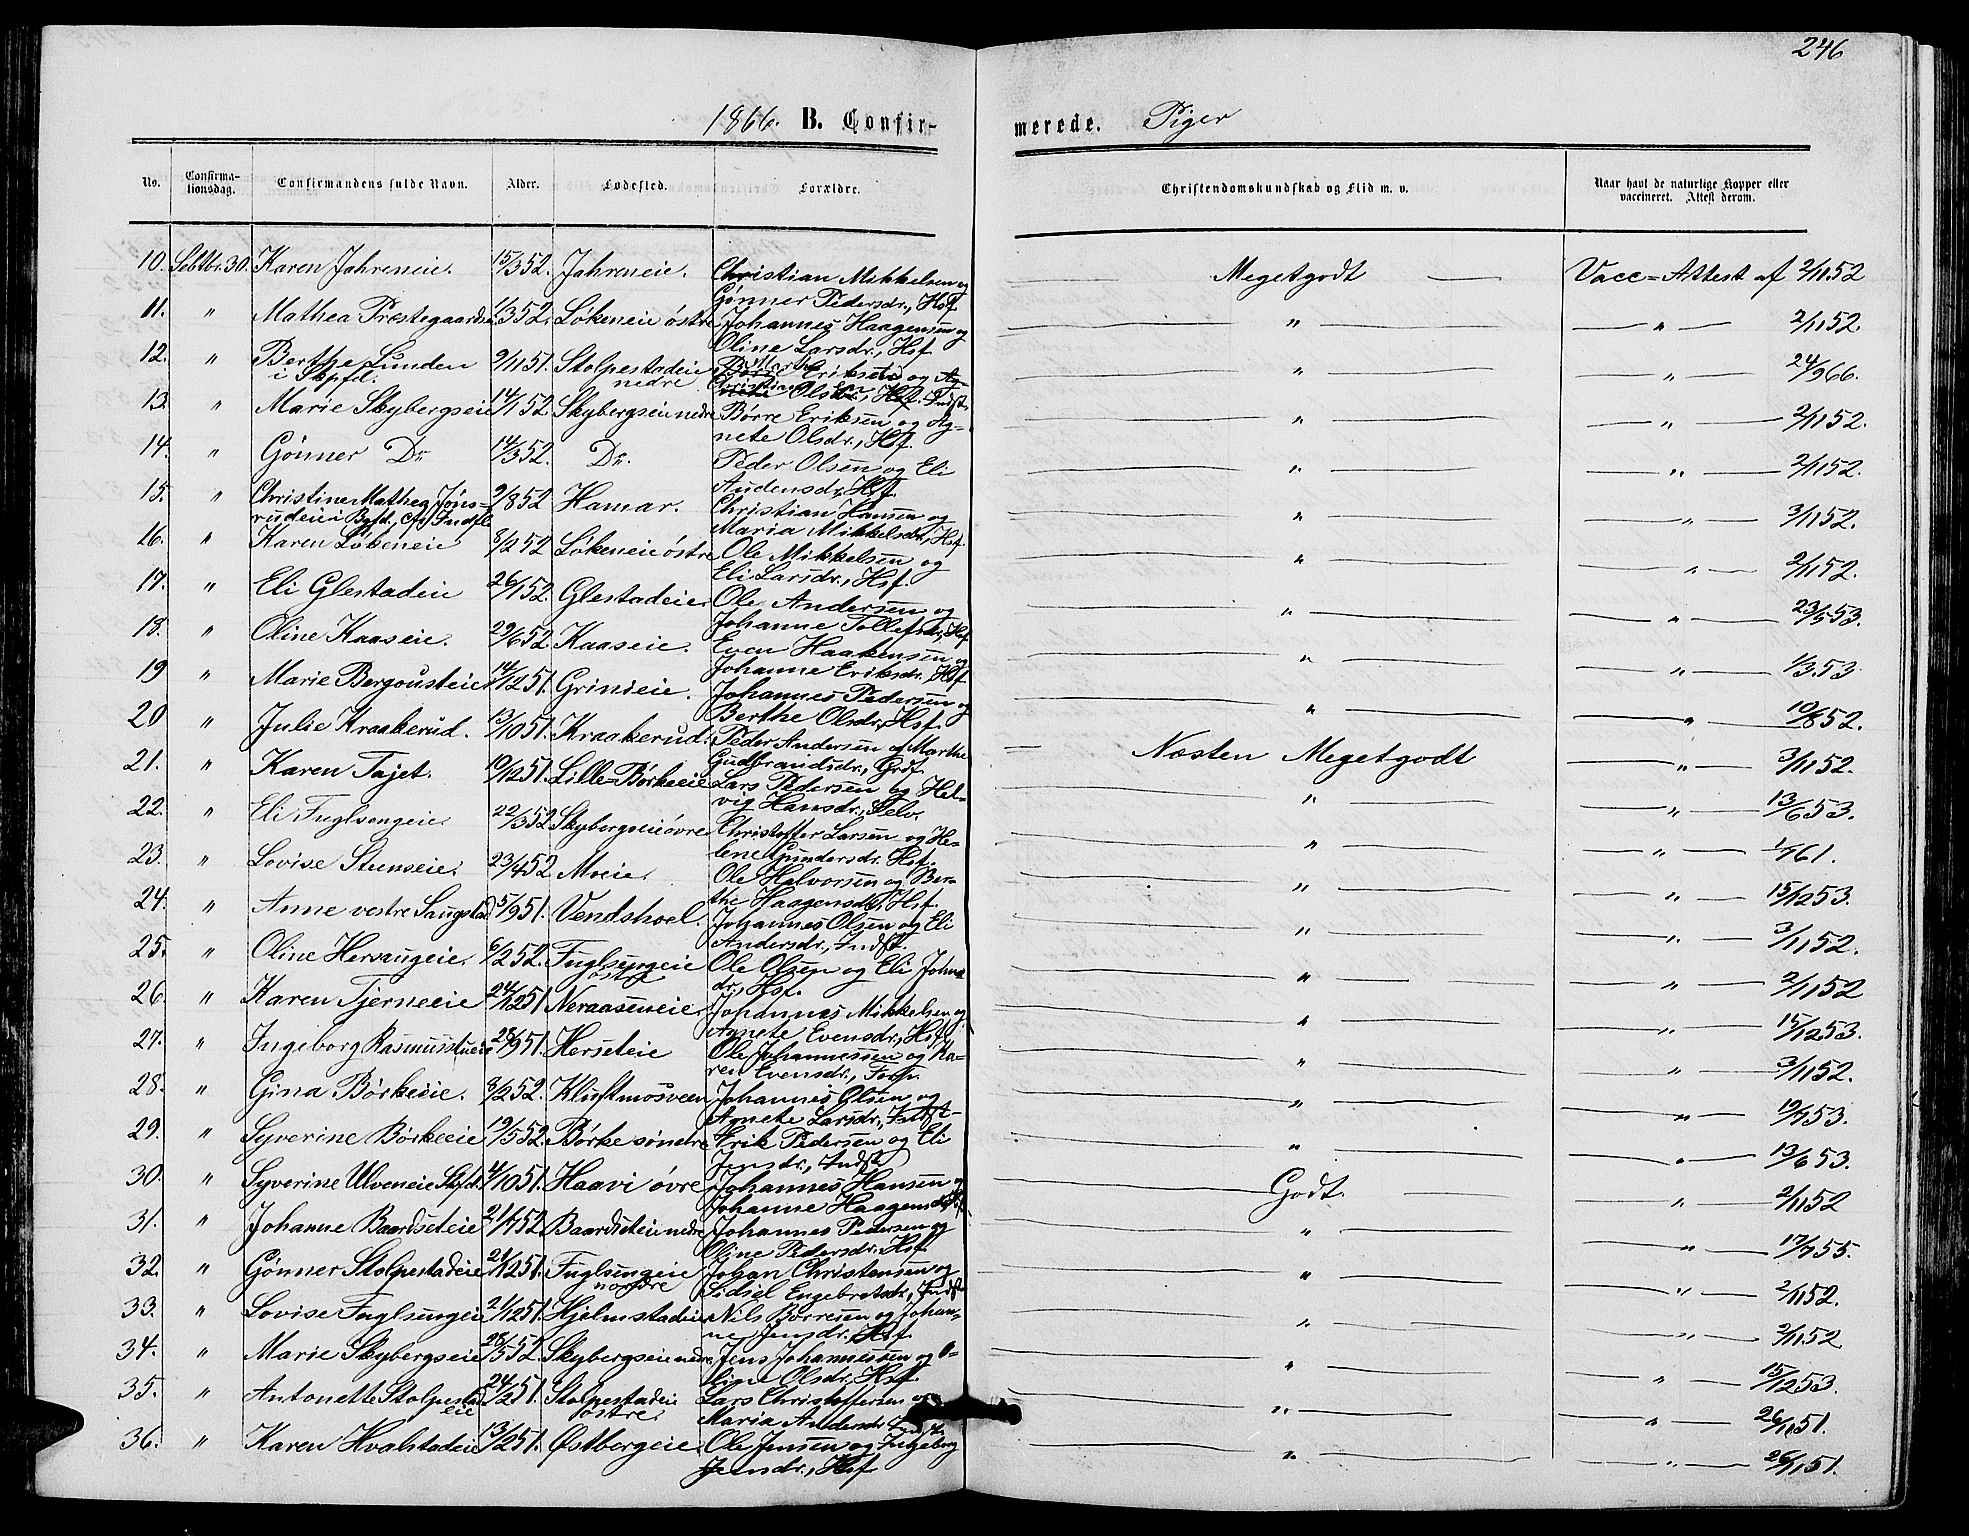 246
1866. B. Confirmerede. Piger
No. Confirmationsdag. Confirmandens fulde Navn. Alder. Fødested. Forældre. Christendomskundskab og Flid m. v. Naar havt de naturlige Kopper eller vaccineret. Attest derom.
10. Sebtbr. 30. Karen Jahreneie. 15/3 52. Jahreneie. Christian Mikkelsen og Gønner Pedersdr., Hsf. Megetgodt Vacc=Attest af 2/11 52
11. " Mathea Prestegaardseie 1/3 52. Løkeneie østre Johannes Haagensen og Oline Larsdr., Hsf. " " 2/11 52.
12. " Berthe Lunden i Skpfd. 9/11 51. Stolpestadeie nedre Eriksen og Christian Ols Hsf. Indst. " " 24/9 66.
13. " Marie Skybergseie 14/1 52. Skybergseie nedre Børre Eriksen og Agnete Olsdr., Hsf. " " 2/11 52.
14. " Gønner Do 14/3 52. Do. Peder Olsen og Eli Audensdr, Hsf. " " 2/11 52.
15. " Christine Mathea Jønsrudeie i Bgfd., 9/8 52 Hamar. Christian Hansen og Maria Mikkelsdr., Hsf. " " 3/11 52.
16. " Karen Løkeneie 8/2 52 Løkeneie østre Ole Mikkelsen og Eli Larsdr., Hsf. " " 2/11 52.
17. " Eli Glestadeie 26/1 52. Glestadeie. Ole Andersen og Johanne Tollefsdr., Hsf. " " 23/5 53.
18. " Oline Kaaseie. 29/6 52. Kaaseie. Even Haakensen og Johanne Eriksdr., Hsf. " " 1/3 53
19 " Marie Bergousteie 14/12 51. Grinieie. Johannes Pedersen og Berthe Olsdr., Hsf. " " 10/8 52.
20 " Julie Kraakerud. 13/10 51. Kraakerud. Peder Andersen og Marthe Gudbrandsdr., Grf. Næsten Megetgodt " 3/11 52.
21. " Karen Tajet. 10/12 51. Lille=Børkeeie Lars Pedersen og Helvig Hansdr., Selv. " " 13/6 53.
22. " Eli Fuglsengeie. 22/3 52 Skybergseie øvre Christoffer Larsen og Helene Gundersdr. Hsf. " " 1/7 61.
23. " Lovise Stenseie. 23/4 52 Moeie. Ole Halvorsen og Berthe Haagensdr., Hsf. " " 15/12 53.
24. " Anne vestre Saugstad 5/9 51. Vendshoel. Johannes Olsen og Eli Andersdr., Indst. " " 3/11 52.
25. " Oline Hersaugeie. 6/2 52. Fuglsengeie østre Ole Olsen og Eli Johnsdr., Hsf. " " 2/11 52
26. " Karen Tjerneeie 24/12 51 Neraaseneie. Johannes Mikkelsen og Agnete Evensdr., Hsf. " " 15/12 53.
27. " Ingeborg Rasmusstueie 28/9 51. Herseteie Ole Johannessen og Karen Evensdr., Forp. " " 3/11 52.
28. " Gina Børkeeie. 8/2 52. Kluftmosveen Johannes Olsen og Agnete Larsdr., Indst. " " 19/7 53.
29. " Syverine Børkeeie 19/5 52. Børke søndre Erik Pedersen og Eli Jensdr., Indst. " " 13/6 53.
30. " Syverine Ulveneie Skfd. 4/10 51. Haavi øvre Johannes Hansen og Johanne Haagensdr., Hsf. Godt. " 2/11 52
31. " Johanne Baardseteie 21/7 52. Baardseteie nedre Johannes Pedersen og Oline Pedersdr., Hsf. " " 17/7 55.
32. " Gønner Stolpestadeie 21/12 51. Fuglsengeie nordre Johan Christensen og Sidsel Engebretsdr., Indst. " " 2/11 52.
33. " Lovise Fuglsengeie 21/12 51. Hjelmstadeie Nils Børresen og Johanne Jensdr., Hsf. " " 2/11 52
34. " Marie Skybergseie 28/5 52. Skybergseie nedre Jens Johannessen og Oline Olsdr., Hsf. " " 15/12 53.
35. " Antonette Stolpestadeie 24/2 51. Stolpestadeie østre. Lars Christoffersen og Maria Andersdr. Indst. " " 26/11 51.
36. " Karen Hvalstadeie 13/2 51. Østbergeie. Ole Jensen og Ingeborg Jensdr., Hsf. " " 26/11 51.